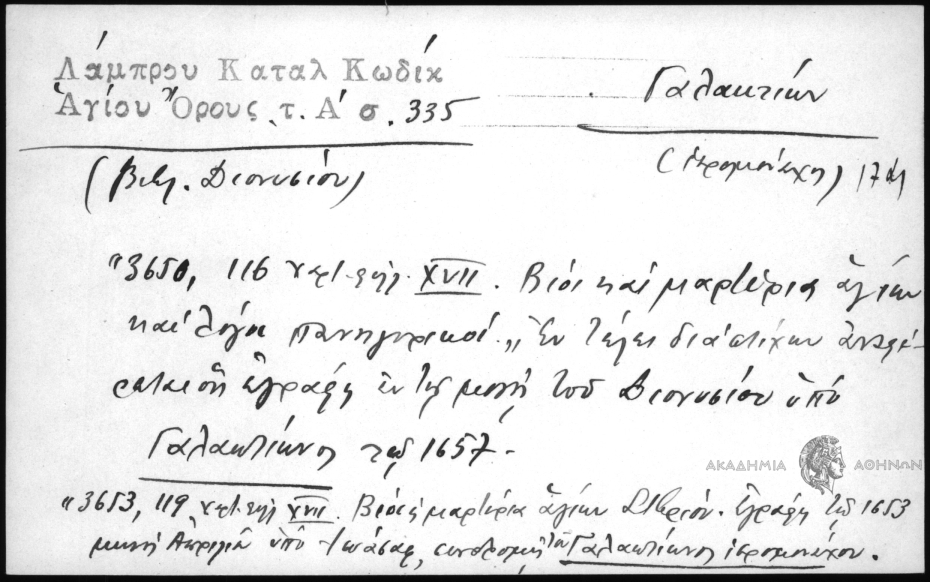 Λάμπρου Καταλ Κωδίκ
Ἁγίου Ὄρους τ. Α' σ. 335
Γαλακτίων
(Βιβλ. Διονυσίου)
(ἱερομονάχος) 17
"3650, 116 χαρτ. XVII. Βίοι καὶ μαρτύρια ἁγίων
καὶ λόγοι πανηγυρικοί. "Ἐν τέλει διὰ στίχων ἀναφέ-
ρεται ὅτι ἐγράφη ἐν τῇ μονῇ τοῦ Διονυσίου ὑπὸ
Γαλακτίωνος τῷ 1657.
ΑΚΑΔΗΜΙΑ ΑΘΗΝΩΝ
"3653, 119 χαρτ. XVII. Βίοι ἢ μαρτύρια ἁγίων. Ἐγράφη τῷ 1653
μηνὶ Ἀπριλίῳ ὑπὸ Ἰωάσαφ, συνδρομῇ τοῦ Γαλακτίωνος ἱερομονάχου.